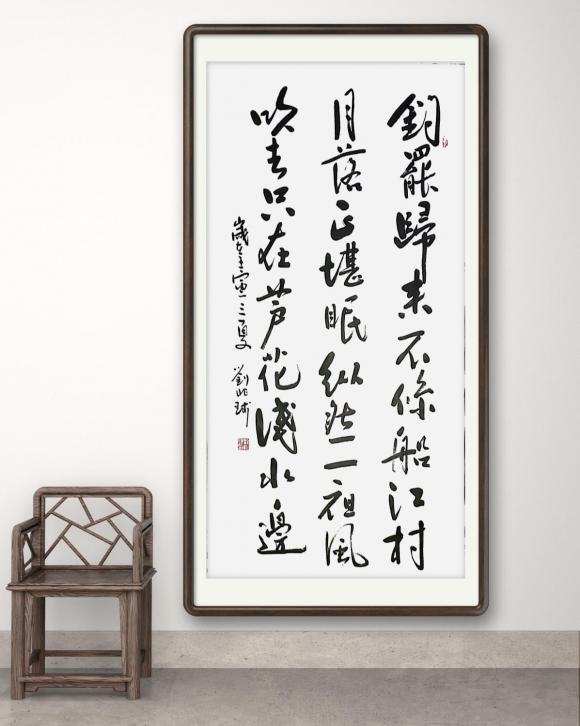 釣罷歸来不係船江村
月落正堪眠纵然一夜風
吹去只在芦花淺水邊
歲在壬寅夏
劉